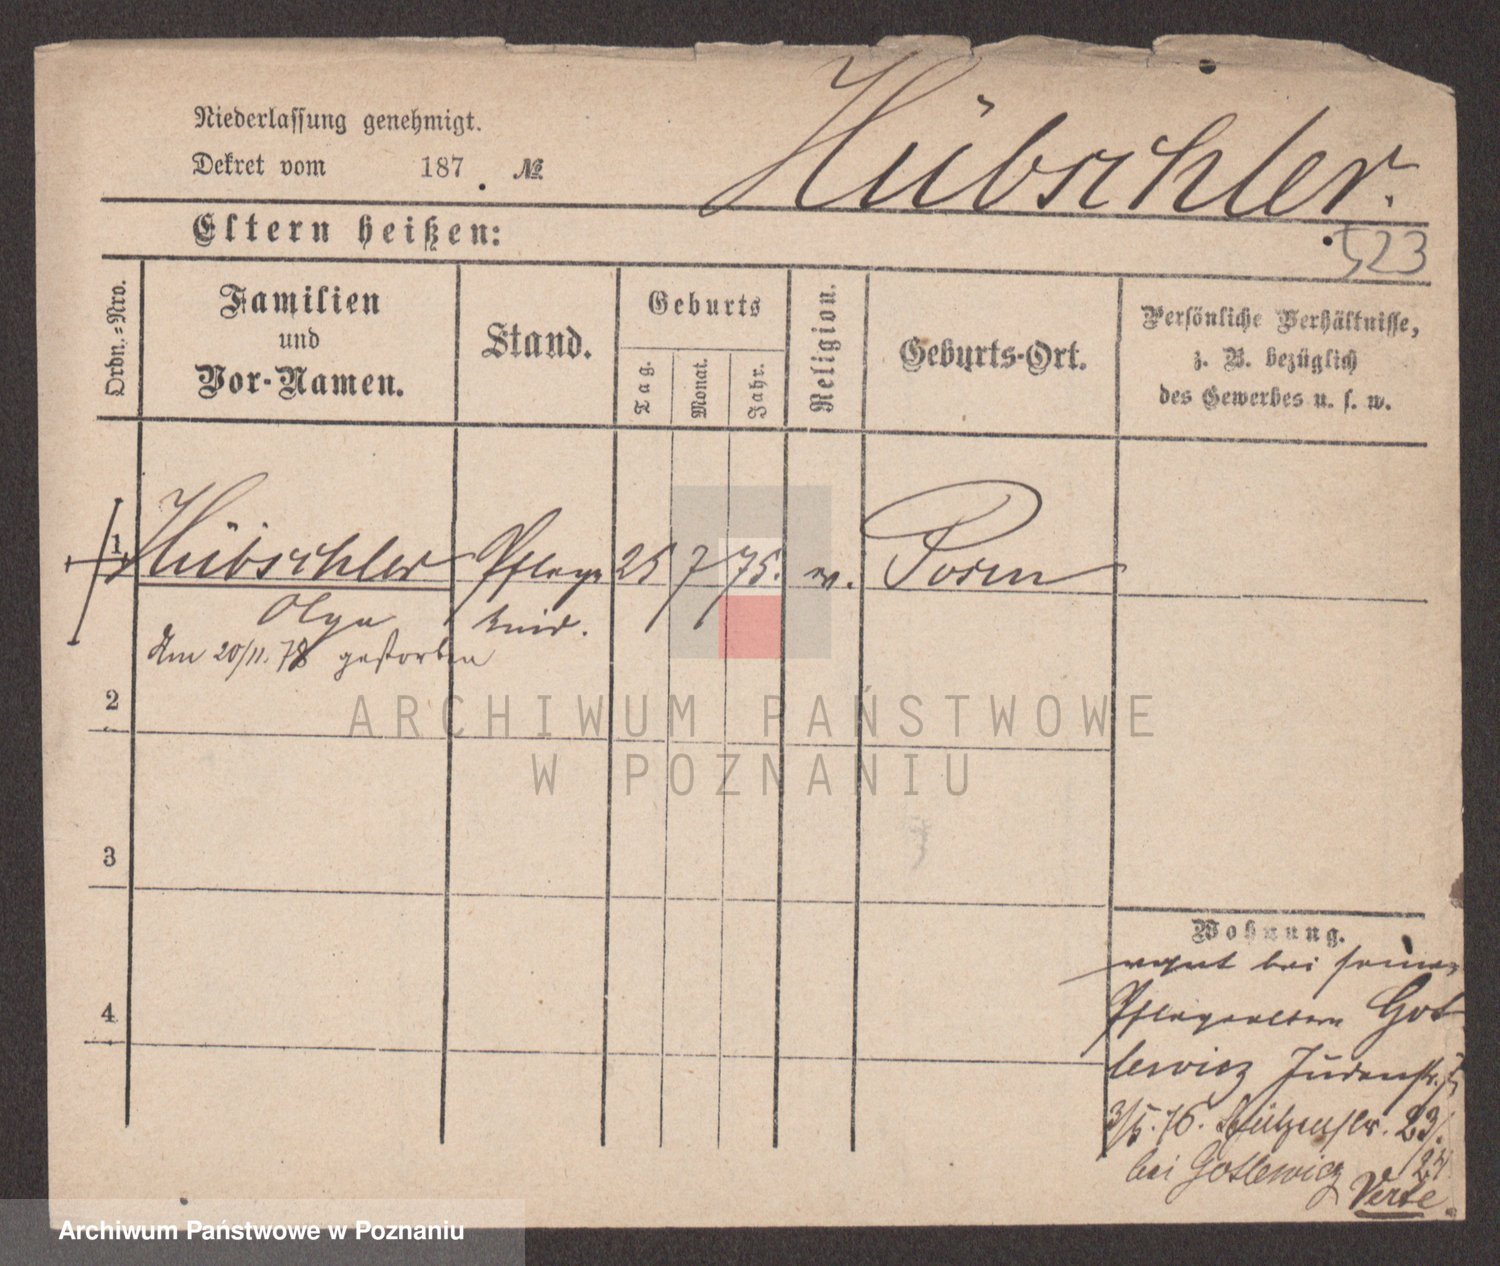 Hübschler.
Niederlassung genehmigt.
Dekret vom 187 . №
Eltern heißen:
523
Ordn.-Nro.
Familien
und
Vor-Namen.
Stand.
Geburts
Tag.
Monat.
Jahr.
Religion.
Geburts-Ort.
Persönliche Verhältnisse,
z. B. bezüglich
des Gewerbes u. s. w.
1. Hübschler Pflege 25 7 75. Posen
Olga kind.
Am 20/11. 78 gestorben
2
3
4
Wohnung.
bei seinen
Pflegeeltern Got
lewicz Judenstr.
3/5. 76. Schützenstr. 23/
24
bei Gotlewicz
Verte
ARCHIWUM PAŃSTWOWE
W POZNANIU
Archiwum Państwowe w Poznaniu